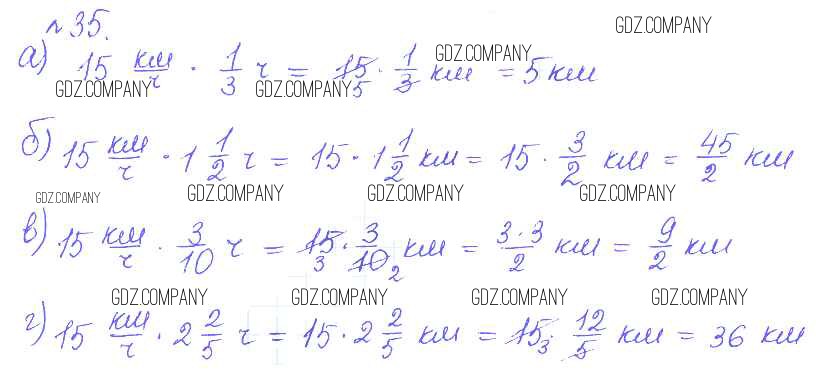 №35.
GDZ.COMPANY
а) 15 км/ч · 1/3 ч = 15 · 1/3 км = 5 км
GDZ.COMPANY
GDZ.COMPANY GDZ.COMPANY 5
б) 15 км/ч · 1 1/2 ч = 15 · 1 1/2 км = 15 · 3/2 км = 45/2 км
GDZ.COMPANY GDZ.COMPANY GDZ.COMPANY GDZ.COMPANY
в) 15 км/ч · 3/10 ч = 15 · 3/10 км = 3·3/2 км = 9/2 км
3 2
GDZ.COMPANY GDZ.COMPANY GDZ.COMPANY GDZ.COMPANY
г) 15 км/ч · 2 2/5 ч = 15 · 2 2/5 км = 15 · 12/5 км = 36 км
3